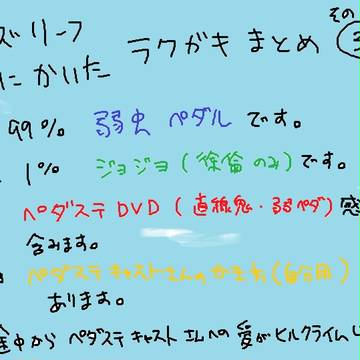 その③
ズリーフ
にかいた ラクガキまとめ
99% 弱虫ペダルです。
1% ジョジョ(徐倫のみ)です。
ペダステDVD(直視鬼・弱ペダ)感
含みます。
ペダステキャストさんの(自分用)
あります。
途中からペダステキャストさんへの愛がヒルクライムし